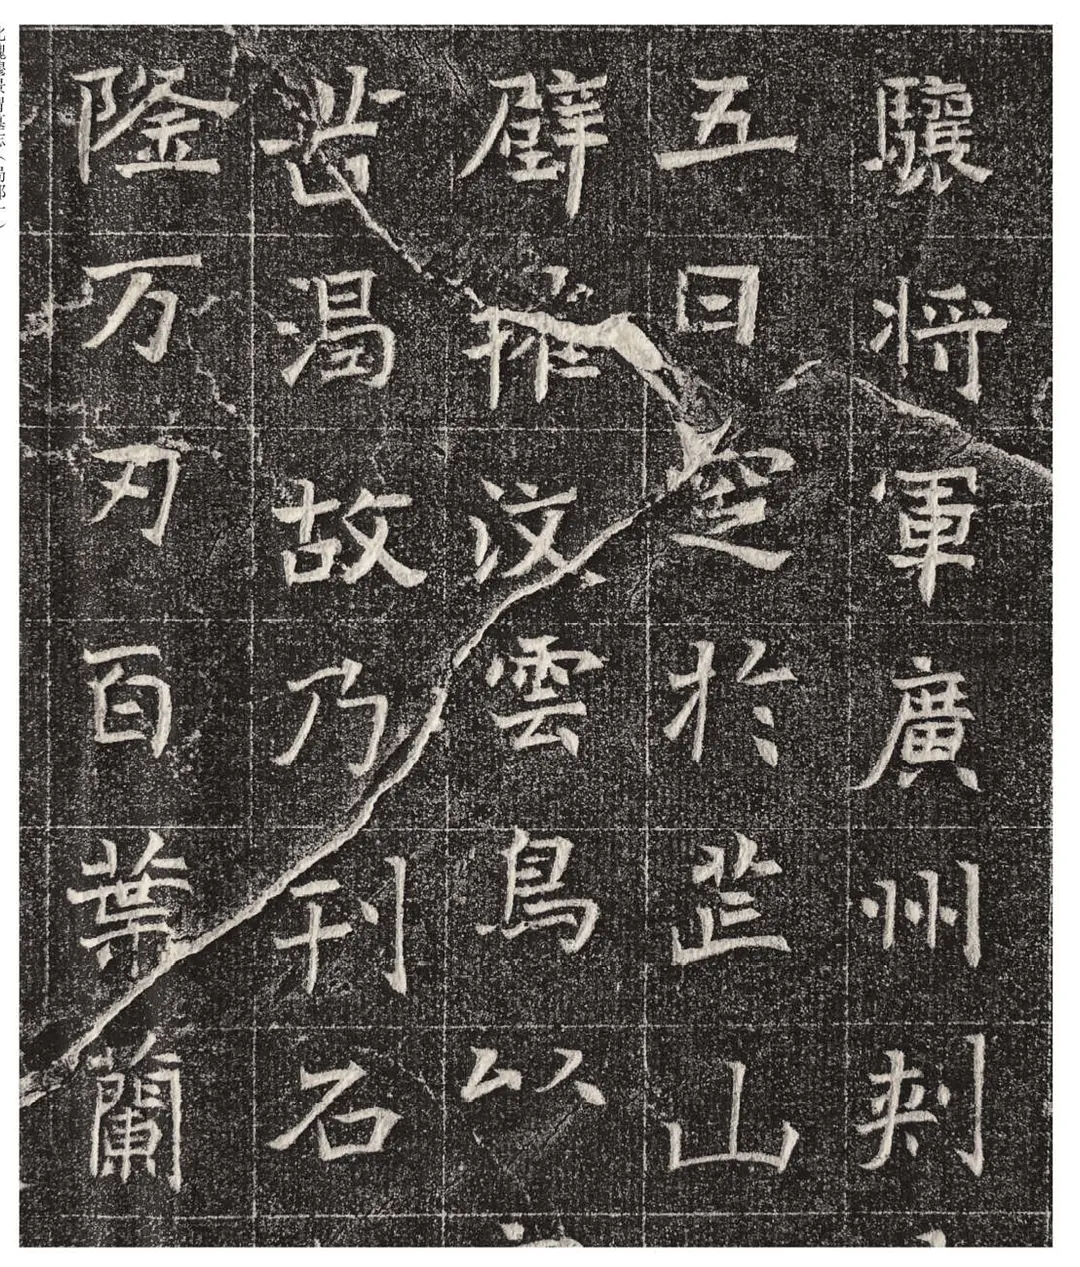 驤將軍廣州刺
五日窆於芒山
璧摧汶雲鳥以
渴故乃刊石
隆万刃百葉蘭